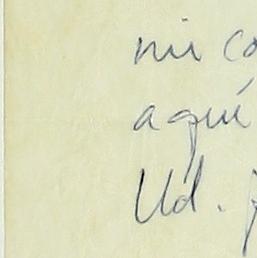 mi co
aquí
Ud.